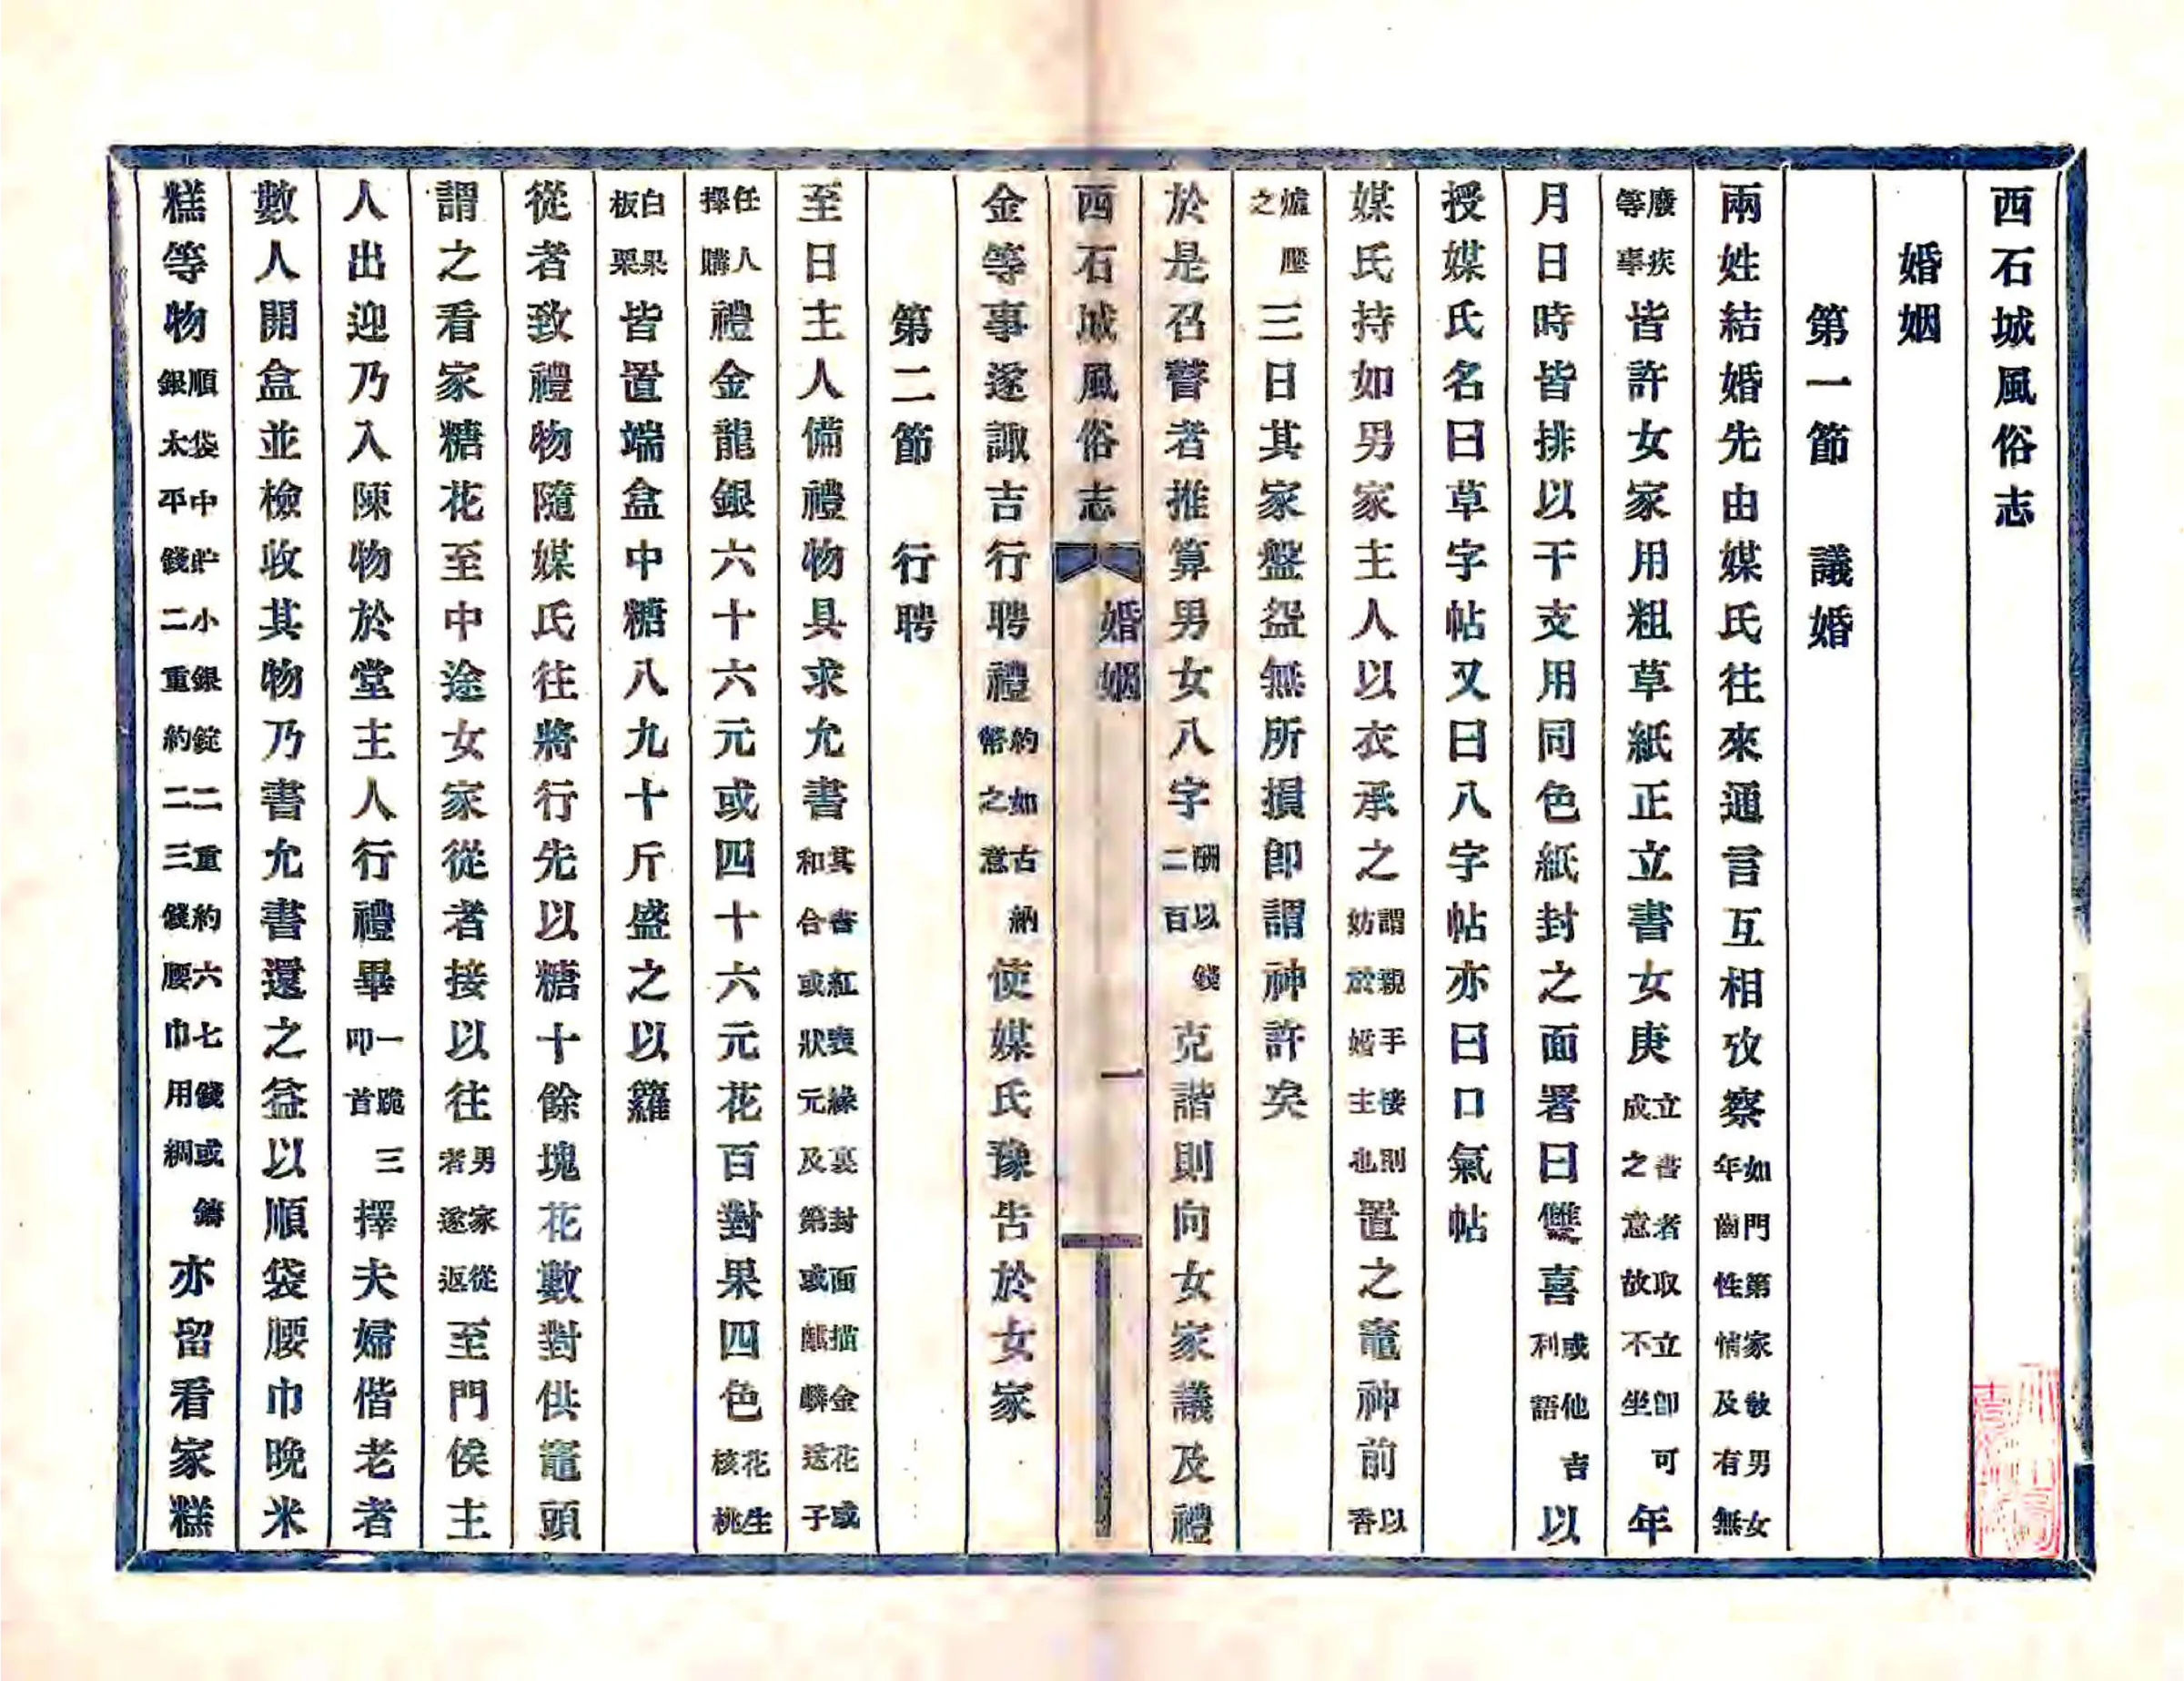 西石城風俗志
婚姻
第一節 議婚
兩姓結婚先由媒氏往來通言互相攷察如門第家敎男女年齒性情及有無
廢疾等事皆許女家用粗草紙正立書女庚立書者取立卽可成之意故不坐年
月日時皆排以干支用同色紙封之面署曰雙喜或他吉利語以
授媒氏名曰草字帖又曰八字帖亦曰口氣帖
媒氏持如男家主人以衣承之謂親手接則妨於婚主也置之竈神前以香
爐壓之三日其家盤盌無所損卽謂神許矣
於是召瞽者推算男女八字酬以錢二百克諧則向女家議及禮
西石城風俗志 婚姻 一
金等事遂諏吉行聘禮約如古納幣之意使媒氏豫告於女家
第二節 行聘
至日主人備禮物具求允書其書紅表綠裏封面描金花或和合或狀元及第或麒麟送子
任人擇購禮金龍銀六十六元或四十六元花百對果四色花生核桃
白果板栗皆置端盒中糖八九十斤盛之以籮
從者致禮物隨媒氏往將行先以糖十餘塊花數對供竈頭
謂之看家糖花至中途女家從者接以往男家從者遂返至門俟主
人出迎乃入陳物於堂主人行禮畢一跪三叩首擇夫婦偕老者
數人開盒並檢收其物乃書允書還之益以順袋腰巾晚米
糕等物順袋中貯小銀錠二重約六七錢或鑄銀太平錢二重約二三錢腰巾用綢亦留看家糕